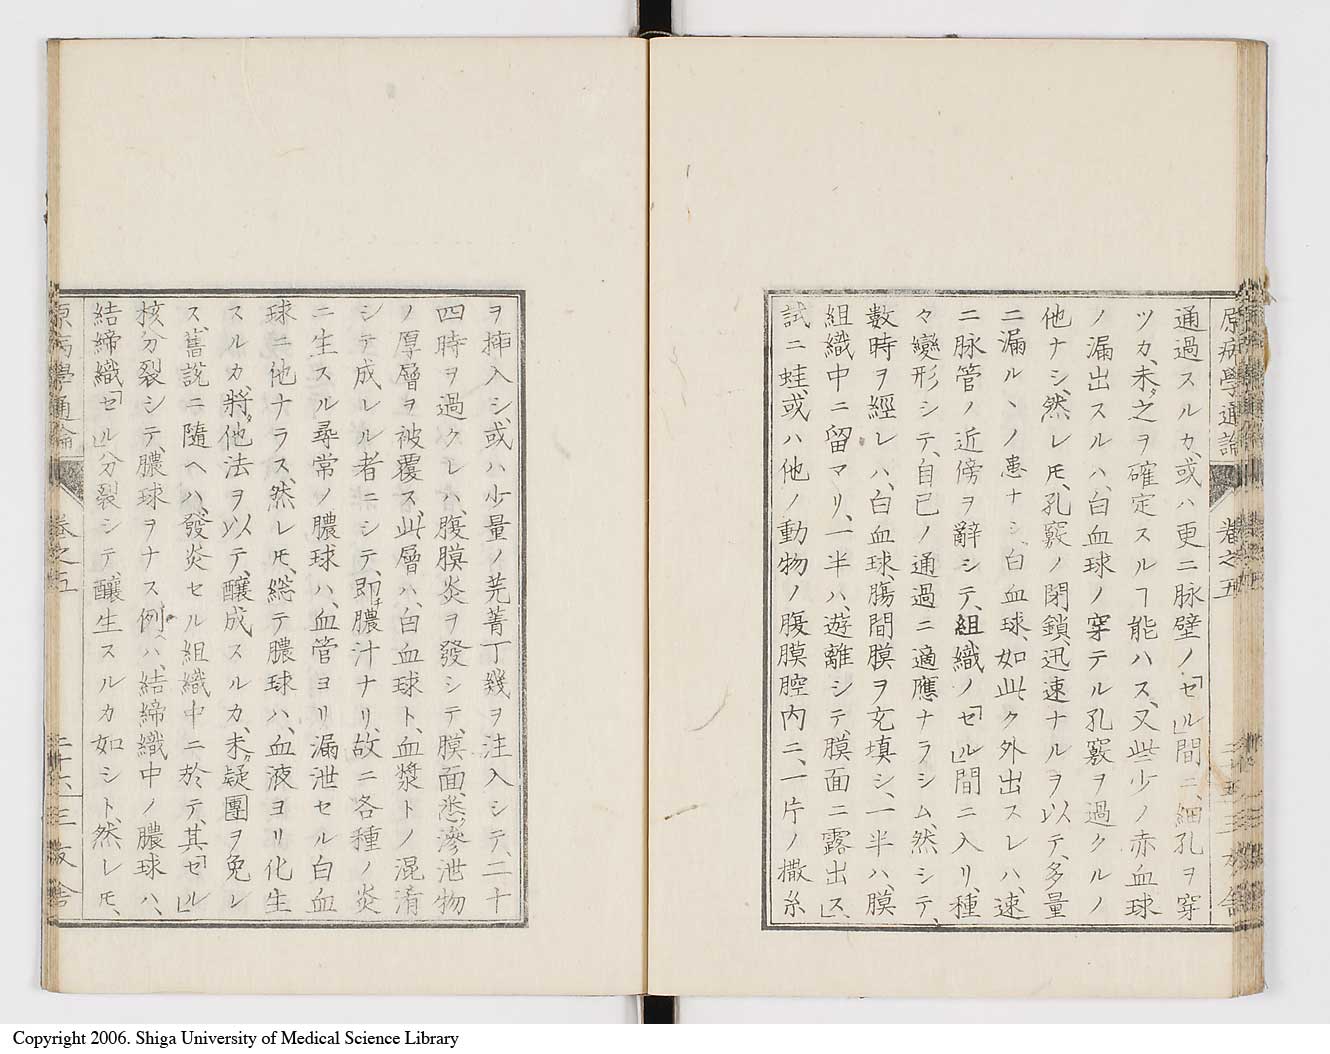 原病學通論 卷之五 二十五 三友舍
通過スルカ、或ハ更ニ脉壁ノ「セル」間ニ、細孔ヲ穿
ツカ、未タ之ヲ確定スルヿ能ハス、又些少ノ赤血球
ノ漏出スルハ、白血球ノ穿テル孔竅ヲ過クルノ
他ナシ、然レ𪜈、孔竅ノ閉鎖、迅速ナルヲ以テ、多量
ニ漏ルヽノ患ナシ、白血球、如此ク外出スレハ、速
ニ脉管ノ近傍ヲ辭シテ、組織ノ「セル」間ニ入リ、種
々變形シテ、自己ノ通過ニ適應ナラシム、然シテ、
數時ヲ經レハ、白血球、膓間膜ヲ充填シ、一半ハ、膜
組織中ニ留マリ、一半ハ、遊離シテ、膜面ニ露出ス、
試ニ蛙、或ハ他ノ動物ノ腹膜腔内ニ、一片ノ撒糸
ヲ揷入シ、或ハ少量ノ芫菁丁幾ヲ注入シテ、二十
四時ヲ過クレハ、腹膜炎ヲ發シテ、膜面、悉ク滲泄物
ノ厚層ヲ被覆ス、此層ハ、白血球ト、血漿トノ混淆
シテ成レル者ニシテ、即チ膿汁ナリ、故ニ各種ノ炎
ニ生スル尋常ノ膿球ハ、血管ヨリ漏泄セル白血
球ニ他ナラス、然レ𪜈、總テ膿球ハ、血液ヨリ化生
スルカ、將タ他法ヲ以テ、釀成スルカ、未タ疑團ヲ免レ
ス、舊說ニ隨ヘハ、發炎セル組織中ニ於テ、其「セル」
核分裂シテ、膿球ヲナス例ヘハ、結締織中ノ膿球ハ、
結締織「セル」ノ分裂シテ、釀生スルカ如シト、然レ𪜈、
原病學通論 卷之五 二十六 三友舍
Copyright 2006. Shiga University of Medical Science Library